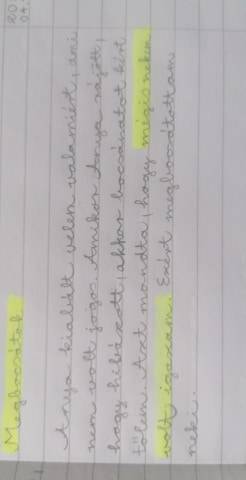 20
04.
Megbocsátok
Anya kiabált velem valamiért, ami
nem volt jogos. Amikor Anya rájött,
hogy hibázott, akkor bocsánatot kért
tőlem. Azt mondta, hogy mégis nekem
volt igazam. Ezért megbocsátottam
neki.